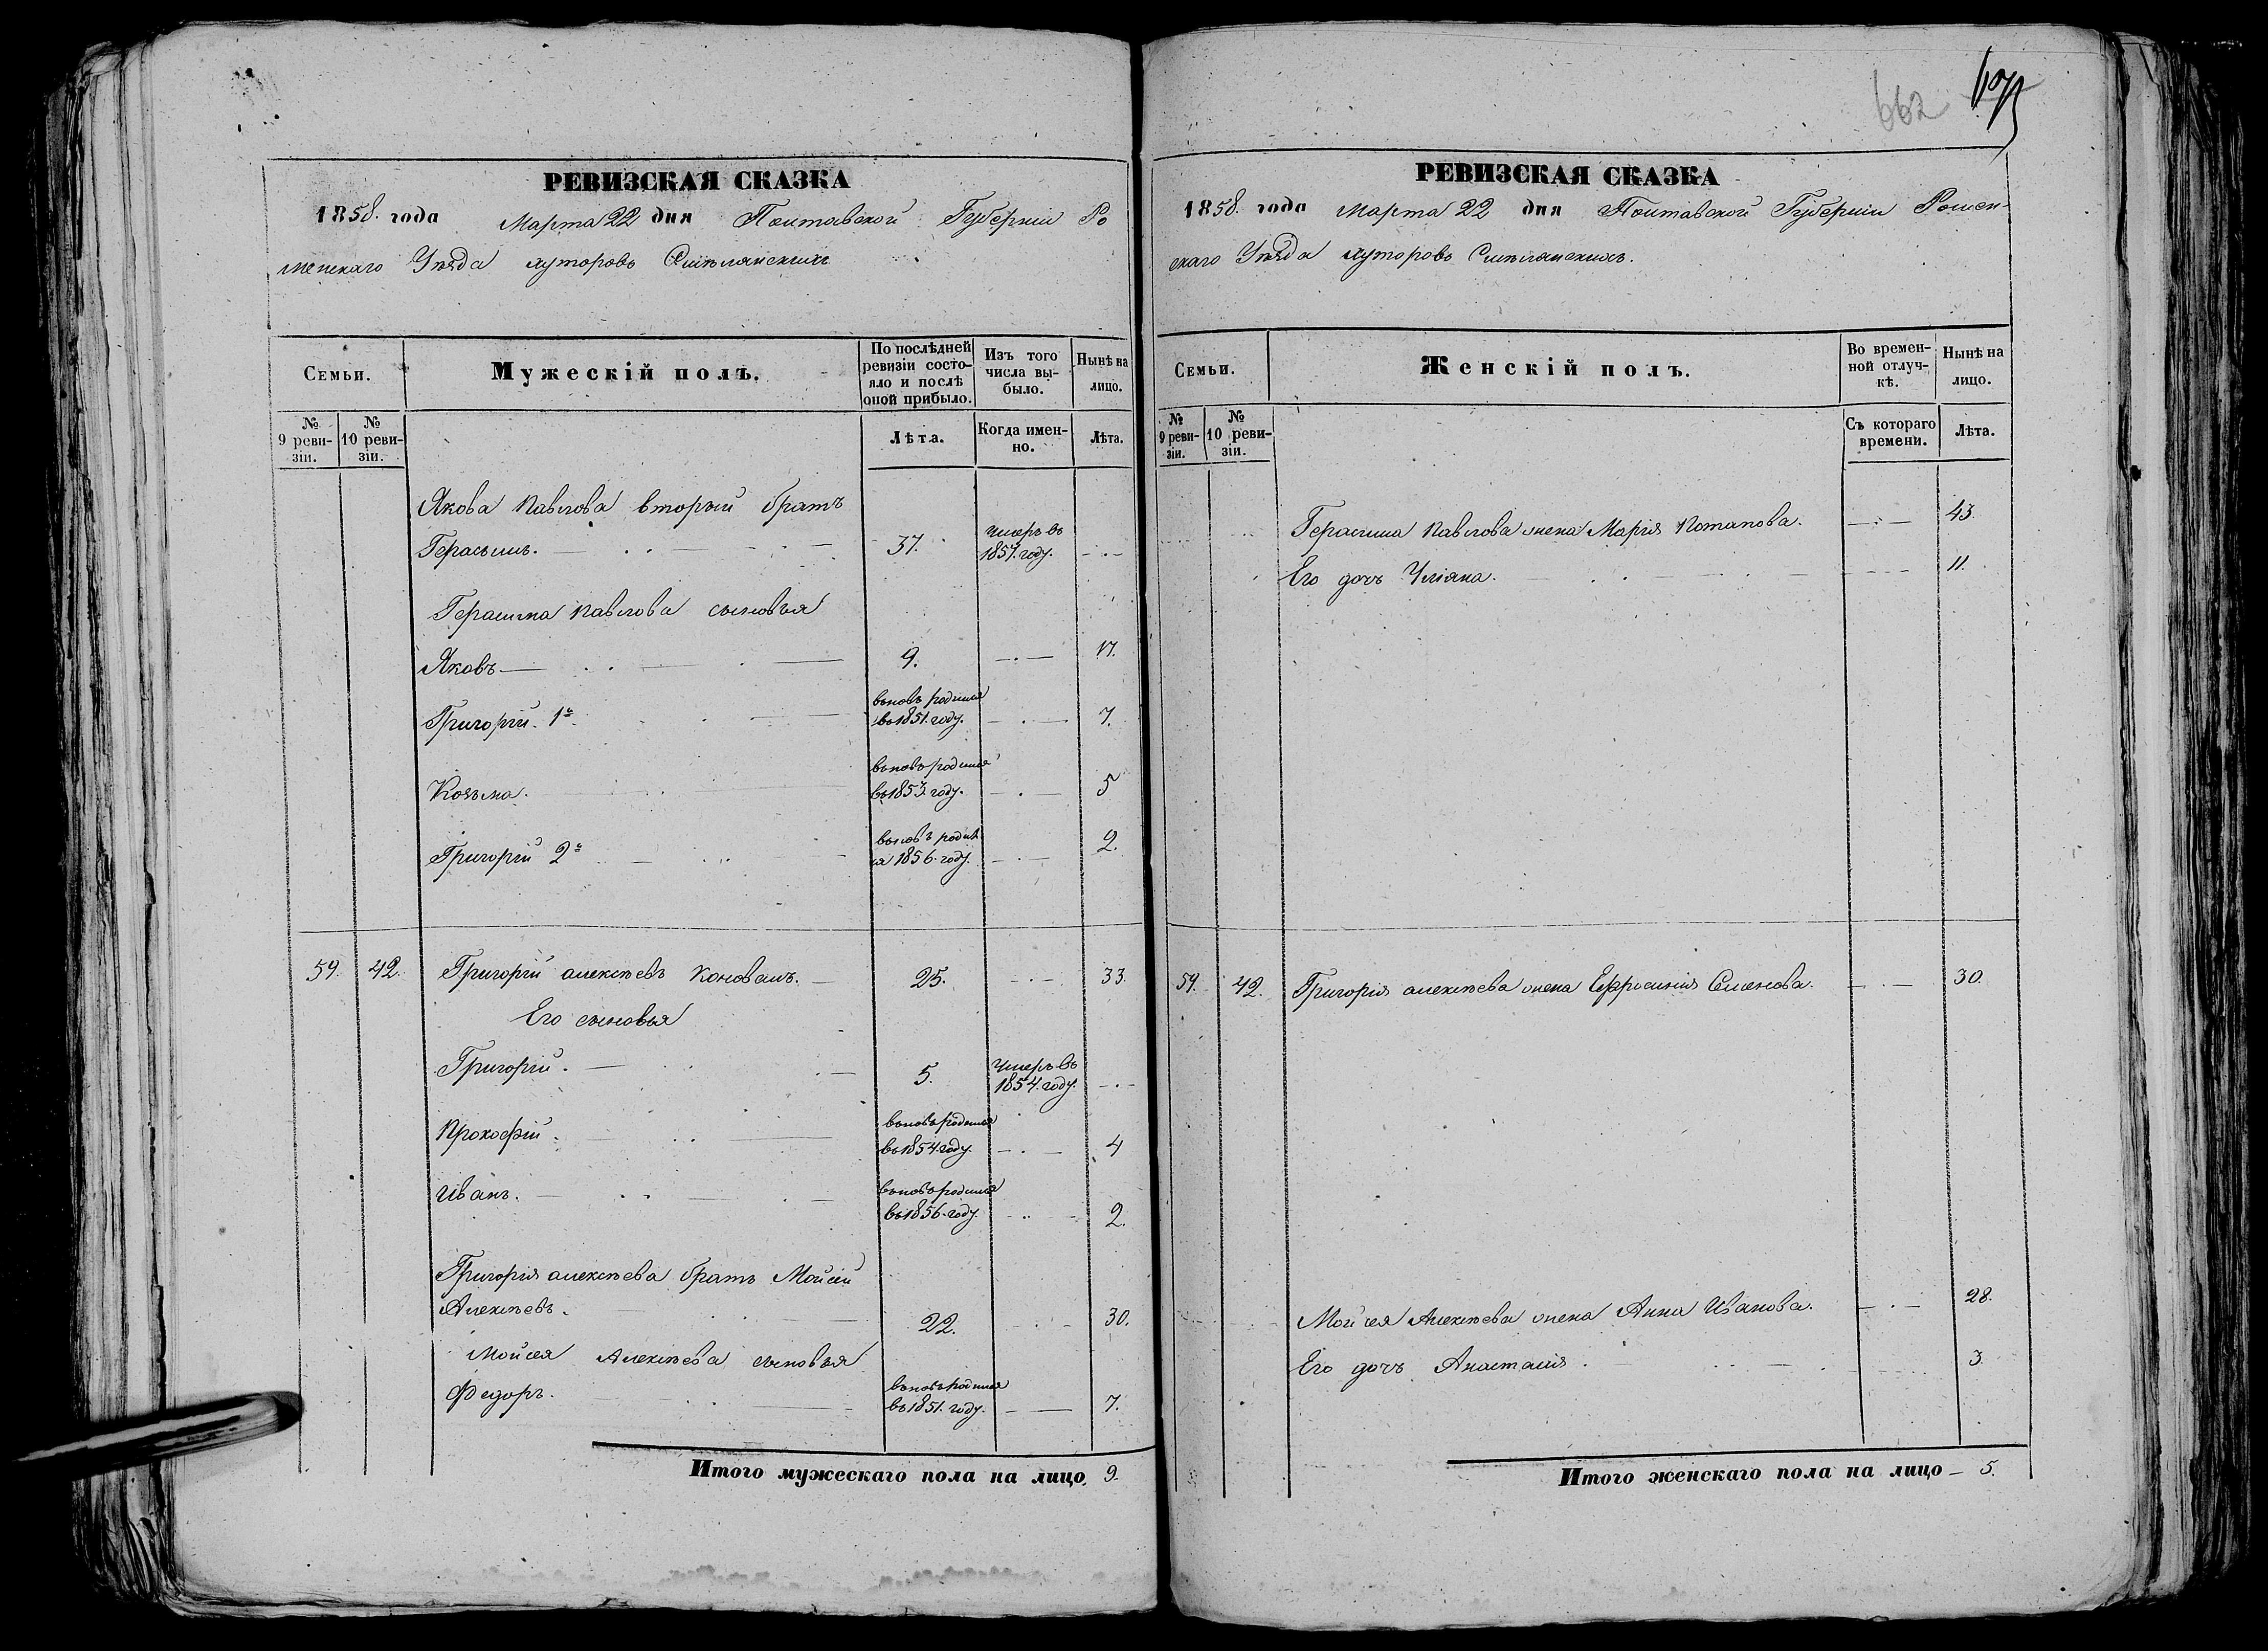 662
РЕВИЗСКАЯ СКАЗКА
1858. года Марта 22 дня Полтавской Губерніи Ро
менскаго Уѣзда хуторовъ Смѣлянскихъ
Семьи.
Мужескій полъ.
По послѣдней
ревизіи состо-
яло и послѣ
оной прибыло.
Изъ того
числа вы-
было.
Нынѣ на
лицо.
№
9 реви-
зіи.
№
10 реви-
зіи.
Лѣта.
Когда имен-
но.
Лѣта.
Якова Павлова вторый братъ
Герасимъ. 37. Умеръ въ
1857. году.
Герасима Павлова сыновья
Яковъ 9. 17.
Григорій. 1й вновь родился
въ 1851. году. 7.
Козьма. вновь родился
въ 1853. году. 5
Григорій 2й вновь родил
ся 1856. году. 2.
59. 42. Григорій Алексѣевъ Коновалъ. 25. 33.
Его сыновья
Григорій. 5. Умеръ въ
1854. году.
Прокофій. вновь родился
въ 1854. году. 4
Иванъ. вновь родился
въ 1856. году. 2.
Григорія Алексѣева братъ Мойсей
Алексѣевъ. 22. 30.
Мойсея Алексѣева сыновья
Федоръ. вновь родился
въ 1851. году. 7.
Итого мужескаго пола на лицо. 9.
РЕВИЗСКАЯ СКАЗКА
1858. года Марта 22 дня Полтавской Губерніи Ромен-
скаго Уѣзда хуторовъ Смѣлянскихъ.
Семьи.
Женскій полъ.
Во времен-
ной отлуч-
кѣ.
Нынѣ на
лицо.
№
9 реви-
зіи.
№
10 реви-
зіи.
Съ котораго
времени.
Лѣта.
Герасима Павлова жена Марія Потапова. 43.
Его дочь Уліяна. 11.
59. 42. Григорія Алексѣева жена Ефросинія Семенова. 30.
Мойсея Алексѣева жена Анна Иванова. 28.
Его дочь Анастасія. 3.
Итого женскаго пола на лицо 5.